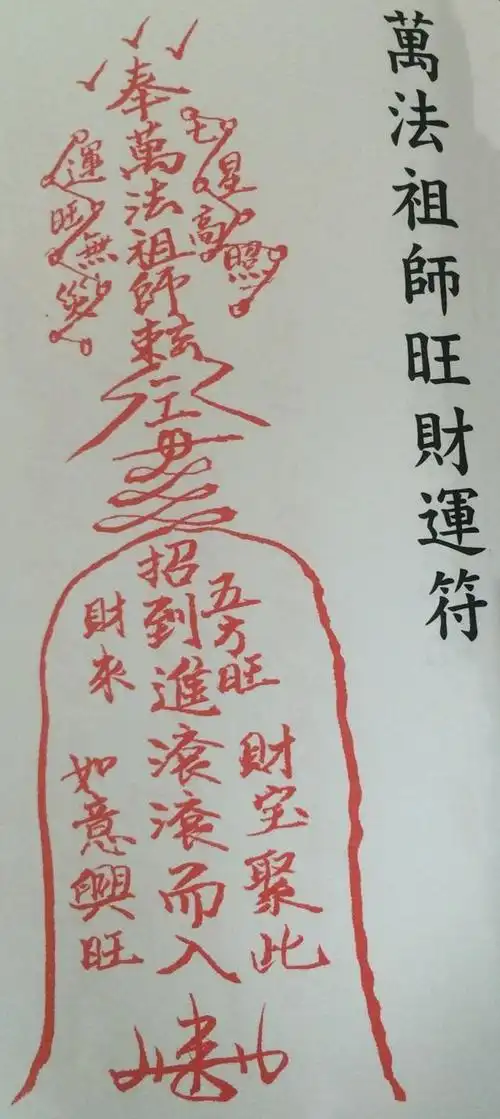 萬法祖師旺財運符
七星高照
奉萬法祖師
運旺無災
五方旺
財宝聚此
招到進滾滾而入
財來
如意興旺